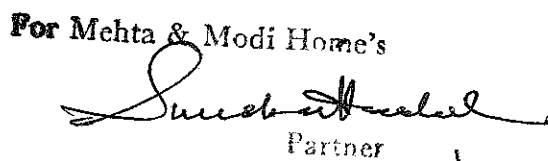 For Mehta & Modi Home's
Partner